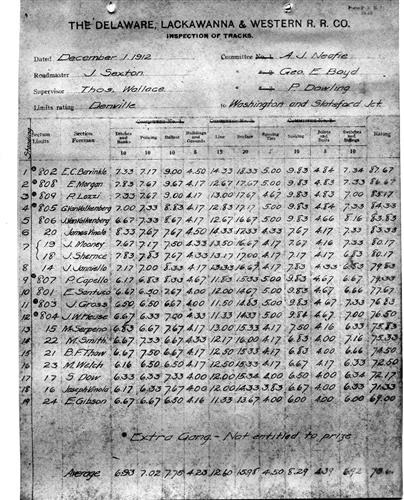 THE DELAWARE, LACKAWANNA & WESTERN R. R. CO.
INSPECTION OF TRACKS.
Dated December 1, 1912 Committee No. 1 A. J. Neafie
Roadmaster J. Sexton Geo. E Boyd
Supervisor Thos. Wallace P. Dowling
Limits rating Denville to Washington and Slatsford Jct.
Standing Section Limits Section Foreman Ditches and Banks Policing Ballast Buildings and Grounds Line Surface Spacing Ties Sucking Joints and Bolts Switches and Sidings Rating
10 10 10 5 15 20 5 10 5 10
1 *802 E.C. Berrinkle 7.33 7.17 9.00 4.50 14.33 18.33 5.00 9.83 4.84 7.34 87.67
2 *808 E. Morgan 7.83 7.67 9.67 4.17 12.67 17.67 5.00 9.83 4.83 7.33 86.67
3 *809 P. Lazzi 7.33 7.67 9.00 4.17 13.00 17.67 4.67 9.83 4.83 7.00
4 *805 7.00 7.33 8.83 4.17 12.83 17.17 5.00 9.83 4.84 7.33 84.33
5 806 6.67 7.33 8.67 4.17 12.67 16.67 5.00 9.83 4.66 8.16 83.83
6 20 James 8.33 7.67 7.67 4.50 14.33 4.33 7.67 4.17 7.33 83.33
7 19 J. Mooney 7.67 7.17 7.50 4.33 13.50 16.67 4.17 7.67 4.16 7.33 80.17
18 J. Shernce 7.83 7.83 7.67 4.33 13.17 17.00 4.17 7.17 4.17 6.83 80.17
8 14 J. Janvello 7.17 7.00 8.33 4.17 16.67 4.17 7.83 4.33
9 *807 P. Capello 6.17 6.83 8.00 4.67 5.00 9.83 4.67 6.67
10 801 E. Santucci 6.67 4.00 4.67 9.00 4.67 7.00
11 *803 J. Gross 6.50 6.50 6.67 4.00 11.50 14.83 5.00 9.83 4.67 7.33 76.83
12 *804 J.W. House 6.67 6.33 4.33 11.33 5.00 9.84 4.67 7.00 76.50
13 15 M. Serpeno 6.83 6.67 7.67 4.17 13.00 15.33 4.17 7.50 4.16 6.33 75.83
14 22 M. Smith 6.67 7.33 6.67 4.33 12.17 16.00 4.17 6.83 4.00 7.16 75.33
15 21 B.F. Thaw 6.67 7.50 6.67 4.17 12.50 15.33 4.17 6.83 4.00 6.66 74.50
16 23 M. Welch 6.16 6.50 6.50 4.17 12.50 15.33 4.17 6.67 4.17 6.33 72.50
17 17 S. Dow 6.33 6.33 7.33 4.00 12.00 15.34 4.00 6.50 4.00 6.34 72.17
18 16 Joseph 6.17 6.33 7.67 4.00 12.00 14.33 3.83 6.67 4.00 6.33 71.33
19 24 E. Gibson 6.67 6.67 6.50 4.16 11.33 13.67 4.00 6.00 4.00 6.00 69.00
*Extra Gang - Not entitled to prize
Average 6.93 7.02 7.75 4.23 12.60 15.98 4.50 8.29 4.39 6.92